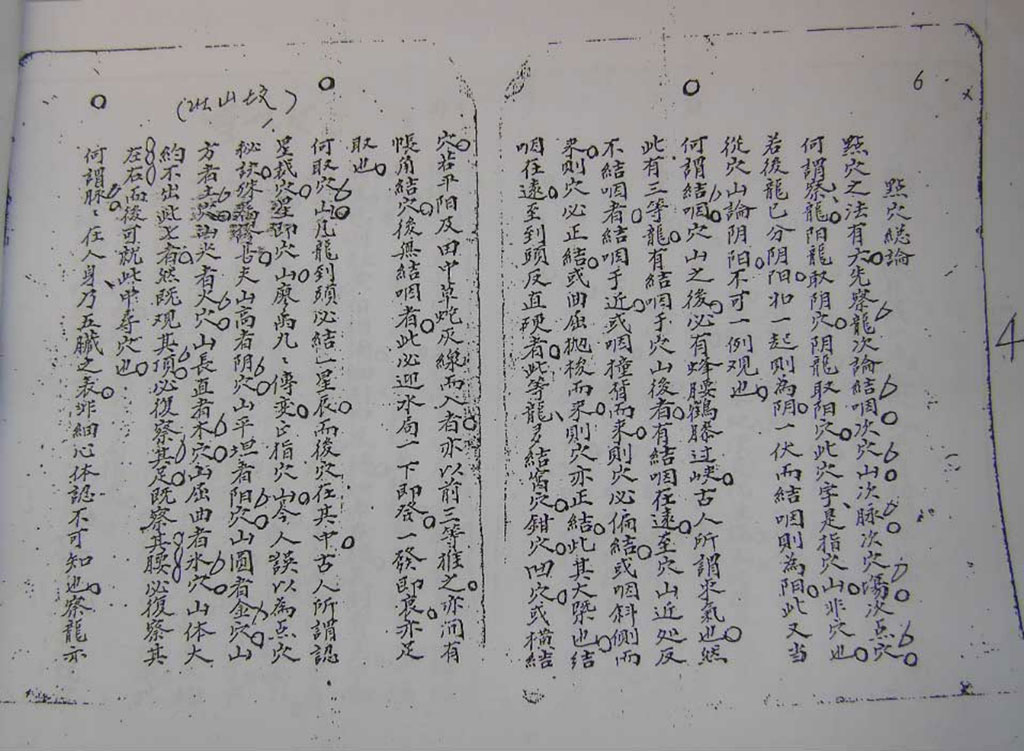 6
點穴總論
點穴之法有六先察龍次論結咽次穴山次脉次穴場次点穴
何謂察龍阳龍取阴穴阴龍取阳穴此穴字是指穴山非穴也
若後龍已分阴阳如一起則為阴一伏而結咽則為阳此又当
從穴山論阴阳不可一例观也
何謂結咽穴山之後必有蜂腰鶴膝过峡古人所謂束氣也然
此有三等龍有結咽于穴山後者有結咽在遠至穴山近处反
不結咽者結咽于近或咽撞背而来則穴必偏結或咽斜側而
来則穴必正結或曲屈抛梭而来則穴亦正結此其大槩也結
咽在遠至到頭反直硬者此等龍多結窩穴鉗穴凹穴或橫結
穴若平阳及田中草蛇灰線而入者亦以前三等推之亦间有
帳角結穴後無結咽者此必迎水局一下即發一發即衰亦足
取也
何取穴山凡龍到頭必結一星辰而後穴在其中古人所謂認
星裁穴星即穴山廖禹九々傳变正指穴山今人誤以為点穴
秘訣殊
善夫山高者阴穴山平坦者阳穴山圓者金穴山
方者土穴山尖者火穴山長直者木穴山屈曲者水穴山体大
約不出此七者然既观其頂必復察其足既察其腰必復察其
左右而後可就此中尋穴也
何謂脉々在人身乃五臟之表非細心体認不可知也察龍亦
4